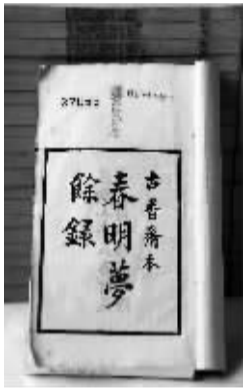 古香齋本
春明夢
餘録